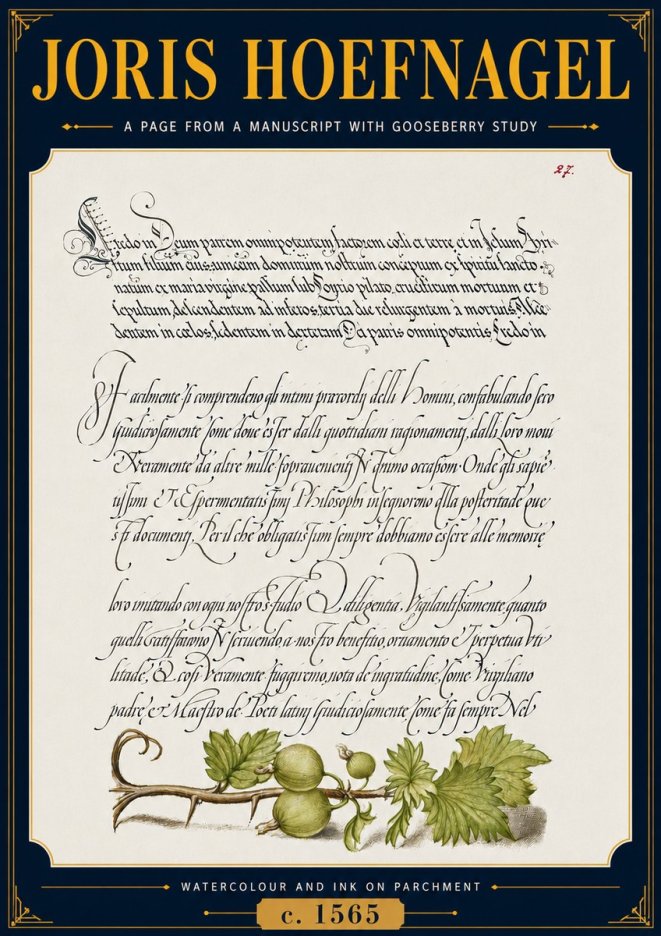 JORIS HOEFNAGEL
A PAGE FROM A MANUSCRIPT WITH GOOSEBERRY STUDY
27.
Credo in Deum patrem omnipotentem factorem cœli et terre, et in Jesum Chri-
stum filium eius unicum dominum nostrum conceptum ex spiritu sancto
natum ex maria virgine, passum sub Pontio pilato, crucifixum mortuum et
sepultum, descendentem ad inferos, tertia die resurgentem à mortuis, Asce-
dentem in cœlos, sedentem in dexteram Dei patris omnipotentis, Credo in
Facilmente si comprendeno gli intimi præcordij delli Homini, confabulando seco
Giudiciosamente Come doue esser dalli quottidiani ragionamentj, dalli loro moui
Veramente da altre mille soprauenientj N occasion. Onde gli sapiē
tissimi Et Esperimentatissimj Philosophi insegnoreno alla posteritade que
sti documentj, Per il che obligatissium sempre dobbiamo essere alle memorie
loro imitando con ogni nostro studio Diligentia, Vigilantissamente quanto
quelli scriuendo, a nostro benefitio, ornamento Et perpetua vti
litade, Et cosi Veramente fuggiremo, nota de ingratitudine, Come Virgiliano
padre, et Maestro de Poeti latinj Giudiciosamente Come fa sempre Nel
WATERCOLOUR AND INK ON PARCHMENT
c. 1565